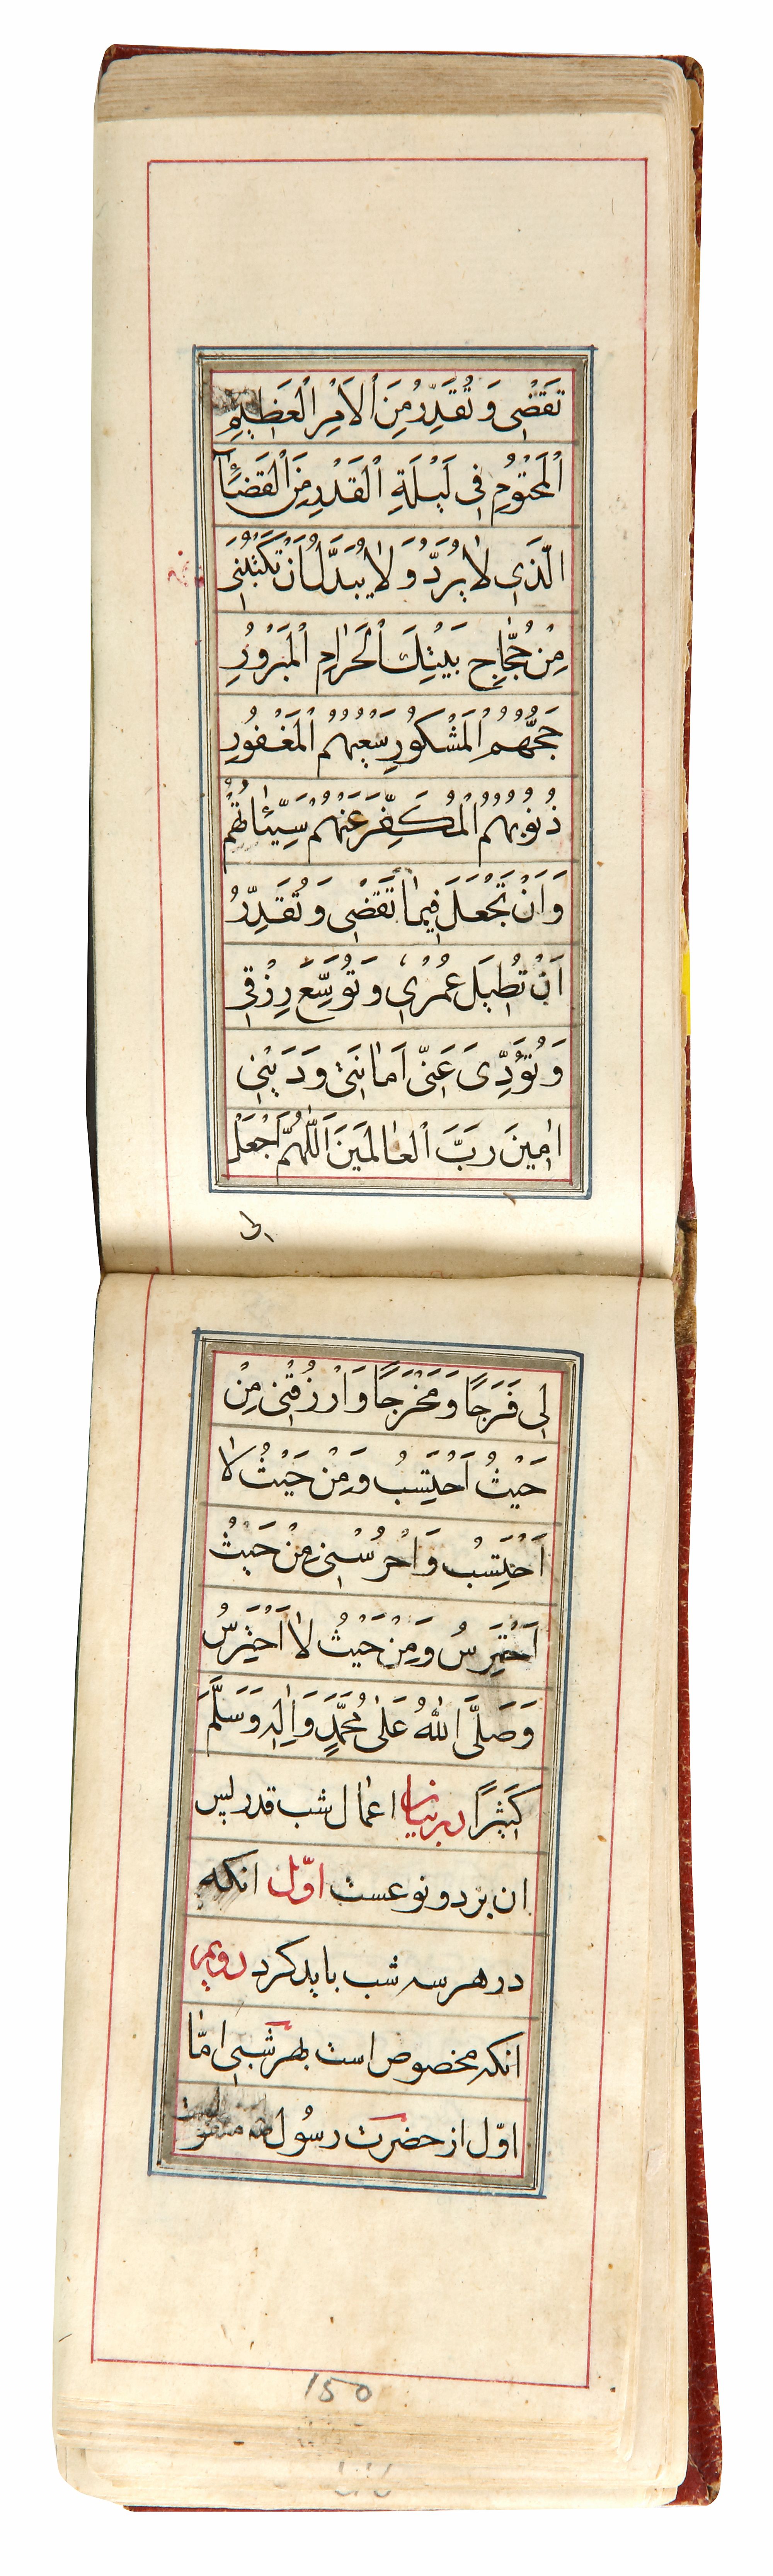 تَقْضٖى وَ تُقَدِّرُ مِنَ الْاَمْرِ الْعَظٖيمِ
الْمَحْتُوْمِ فٖى لَيْلَةِ الْقَدْرِ مِنَ الْقَضَآءِ
الَّذٖى لٰا يُرَدُّ وَ لٰا يُبَدَّلُ اَنْ تَكْتُبَنٖى
مِنْ حُجّٰاجِ بَيْتِكَ الْحَرٰامِ الْمَبْرُوْرِ
حَجُّهُمْ الْمَشْكُوْرِ سَعْيُهُمْ الْمَغْفُوْرِ
ذُنُوْبُهُمْ الْمُكَفَّرِ عَنْهُمْ سَيِّئٰاتُهُمْ
وَ اَنْ تَجْعَلَ فٖيمٰا تَقْضٖى وَ تُقَدِّرُ
اَنْ تُطٖيلَ عُمْرٖى وَ تُوَسِّعَ رِزْقٖى
وَ تُؤَدِّىَ عَنّٖى اَمٰانَتٖى وَ دَيْنٖى
اٰمٖينَ رَبَّ الْعٰالَمٖينَ اَللّٰهُمَّ اجْعَلْ
لى
لٖى فَرَجًا وَ مَخْرَجًا وَ ارْزُقْنٖى مِنْ
حَيْثُ اَحْتَسِبُ وَ مِنْ حَيْثُ لٰا
اَحْتَسِبُ وَ احْرُسْنٖى مِنْ حَيْثُ
اَحْتَرِسُ وَ مِنْ حَيْثُ لٰا اَحْتَرِسُ
وَ صَلَّى اللّٰهُ عَلٰى مُحَمَّدٍ وَ اٰلِهٖ وَ سَلَّمَ
كَثٖيرًا در بيان اعمال شب قدر پس
ان بر دو نوعست اوّل انكه
در هر سه شب بايد كرد دويم
انكه مخصوص است بهر شبى امّا
اوّل از حضرت رسول منقولست
150